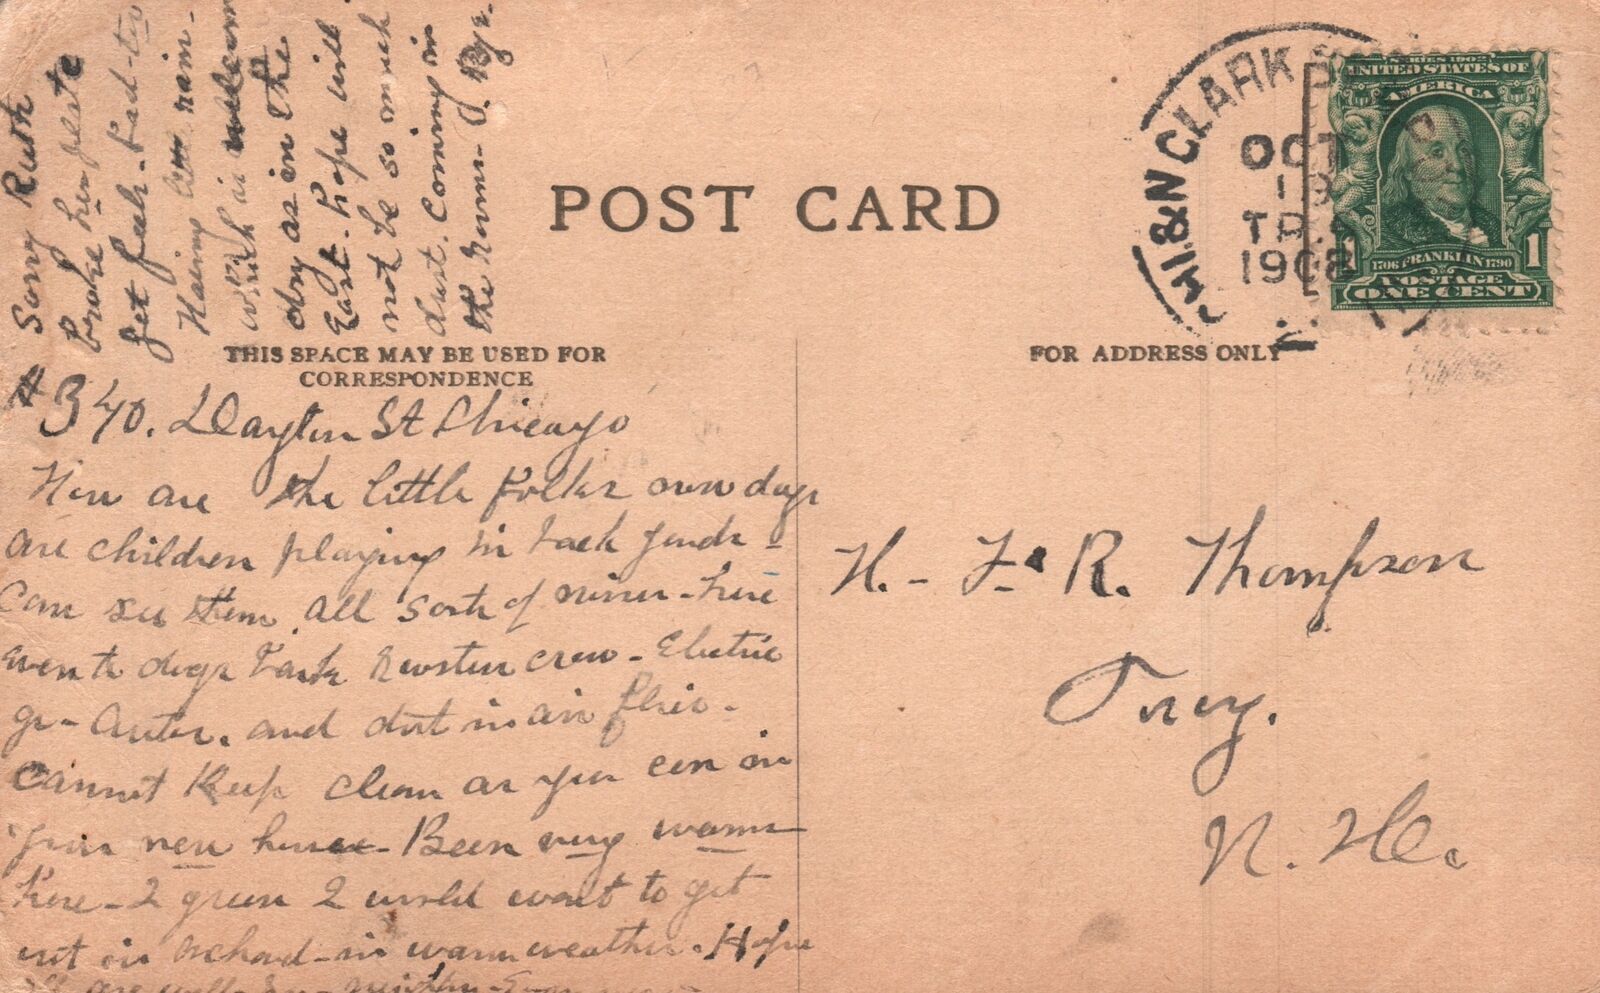 POST CARD
THIS SPACE MAY BE USED FOR
CORRESPONDENCE
FOR ADDRESS ONLY
CHI&N CLARK
OCT
13
TR.
1908
SERIES 1902
UNITED STATES OF
AMERICA
1706 FRANKLIN 1790
1 1
POSTAGE
ONE CENT
# 340. Dayton St Chicago
How are the little folks own days
are children playing in back yards -
Can see them all sorts of - here
even to dogs bark - Electric
and dirt in air flies -
Cannot keep clean as you can in
your new house - Been very warm
here - 2 green 2 would want to get
out in orchard - in warm weather. Hope
all are well
Sorry Ruth
broke her plate
get fech. - bad - too
Having rain -
which is welcome
dry as in the
East - hope will
not be so much
dust. Coming in
the rooms - J. Bye.
H. - F. R. Thompson
Troy.
N. H.